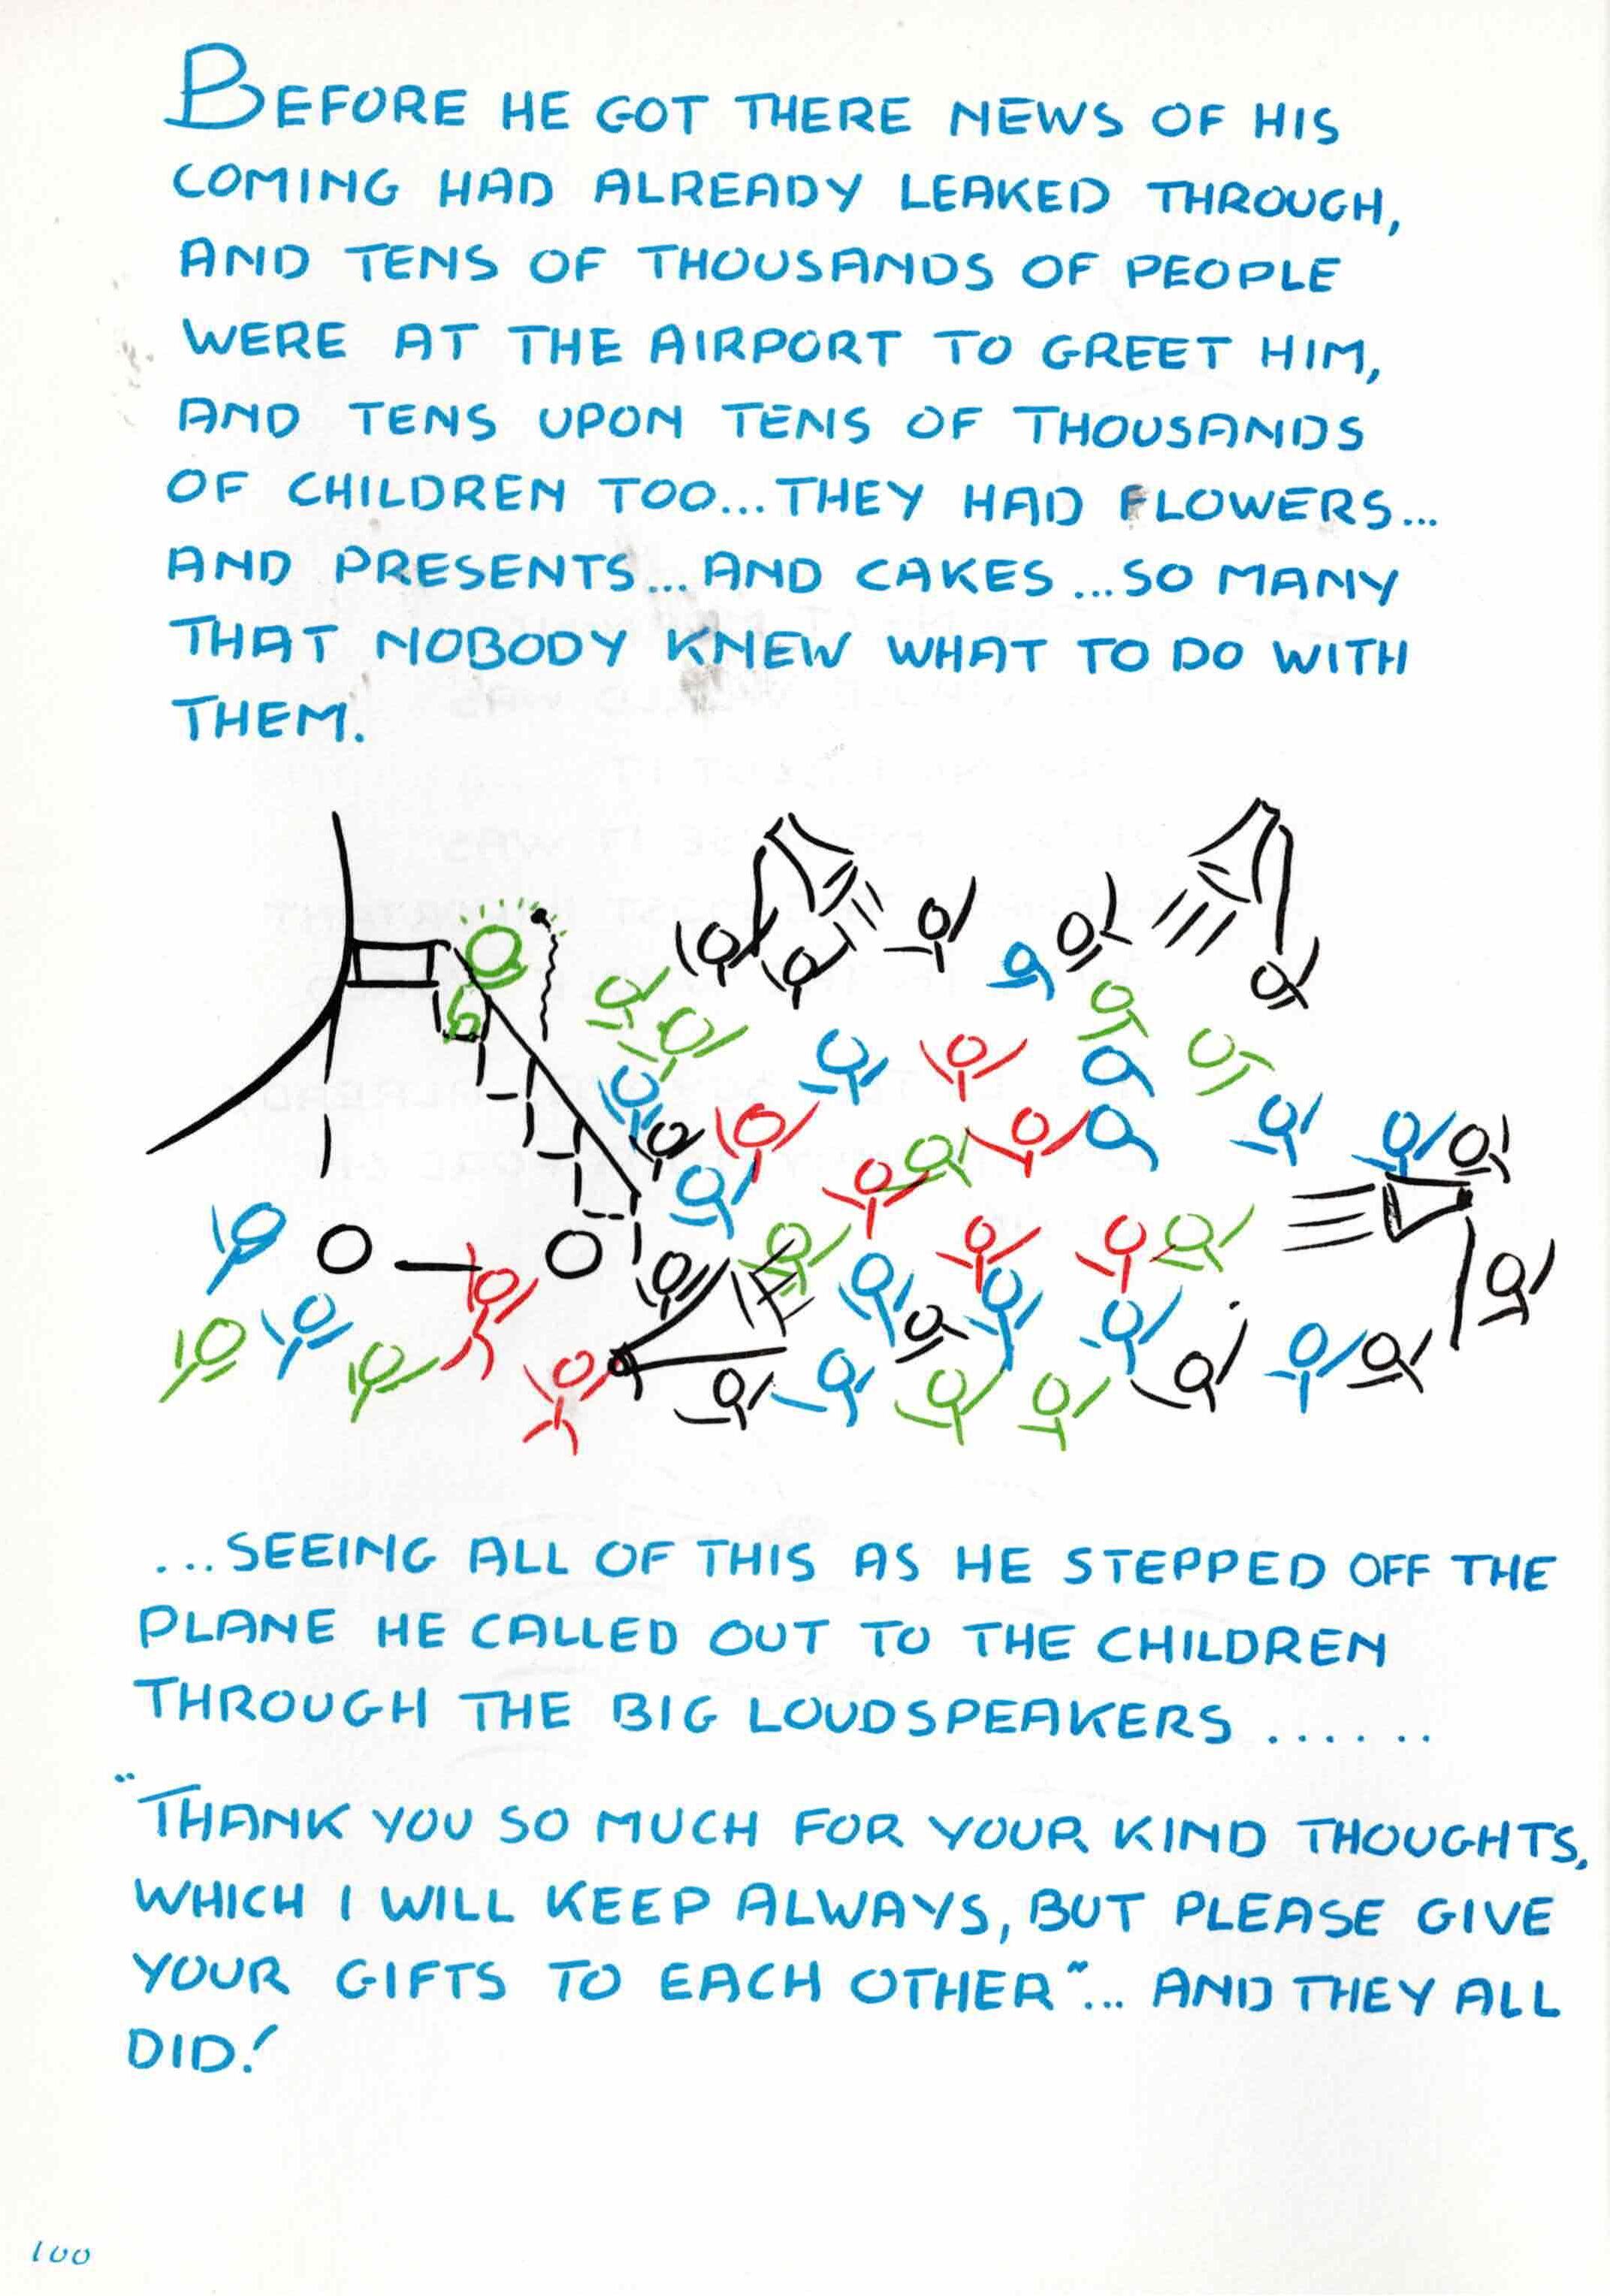 BEFORE HE GOT THERE NEWS OF HIS
COMING HAD ALREADY LEAKED THROUGH,
AND TENS OF THOUSANDS OF PEOPLE
WERE AT THE AIRPORT TO GREET HIM,
AND TENS UPON TENS OF THOUSANDS
OF CHILDREN TOO...THEY HAD FLOWERS...
AND PRESENTS...AND CAKES...SO MANY
THAT NOBODY KNEW WHAT TO DO WITH
THEM.
...SEEING ALL OF THIS AS HE STEPPED OFF THE
PLANE HE CALLED OUT TO THE CHILDREN
THROUGH THE BIG LOUDSPEAKERS ......
"THANK YOU SO MUCH FOR YOUR KIND THOUGHTS,
WHICH I WILL KEEP ALWAYS, BUT PLEASE GIVE
YOUR GIFTS TO EACH OTHER"... AND THEY ALL
DID!
100